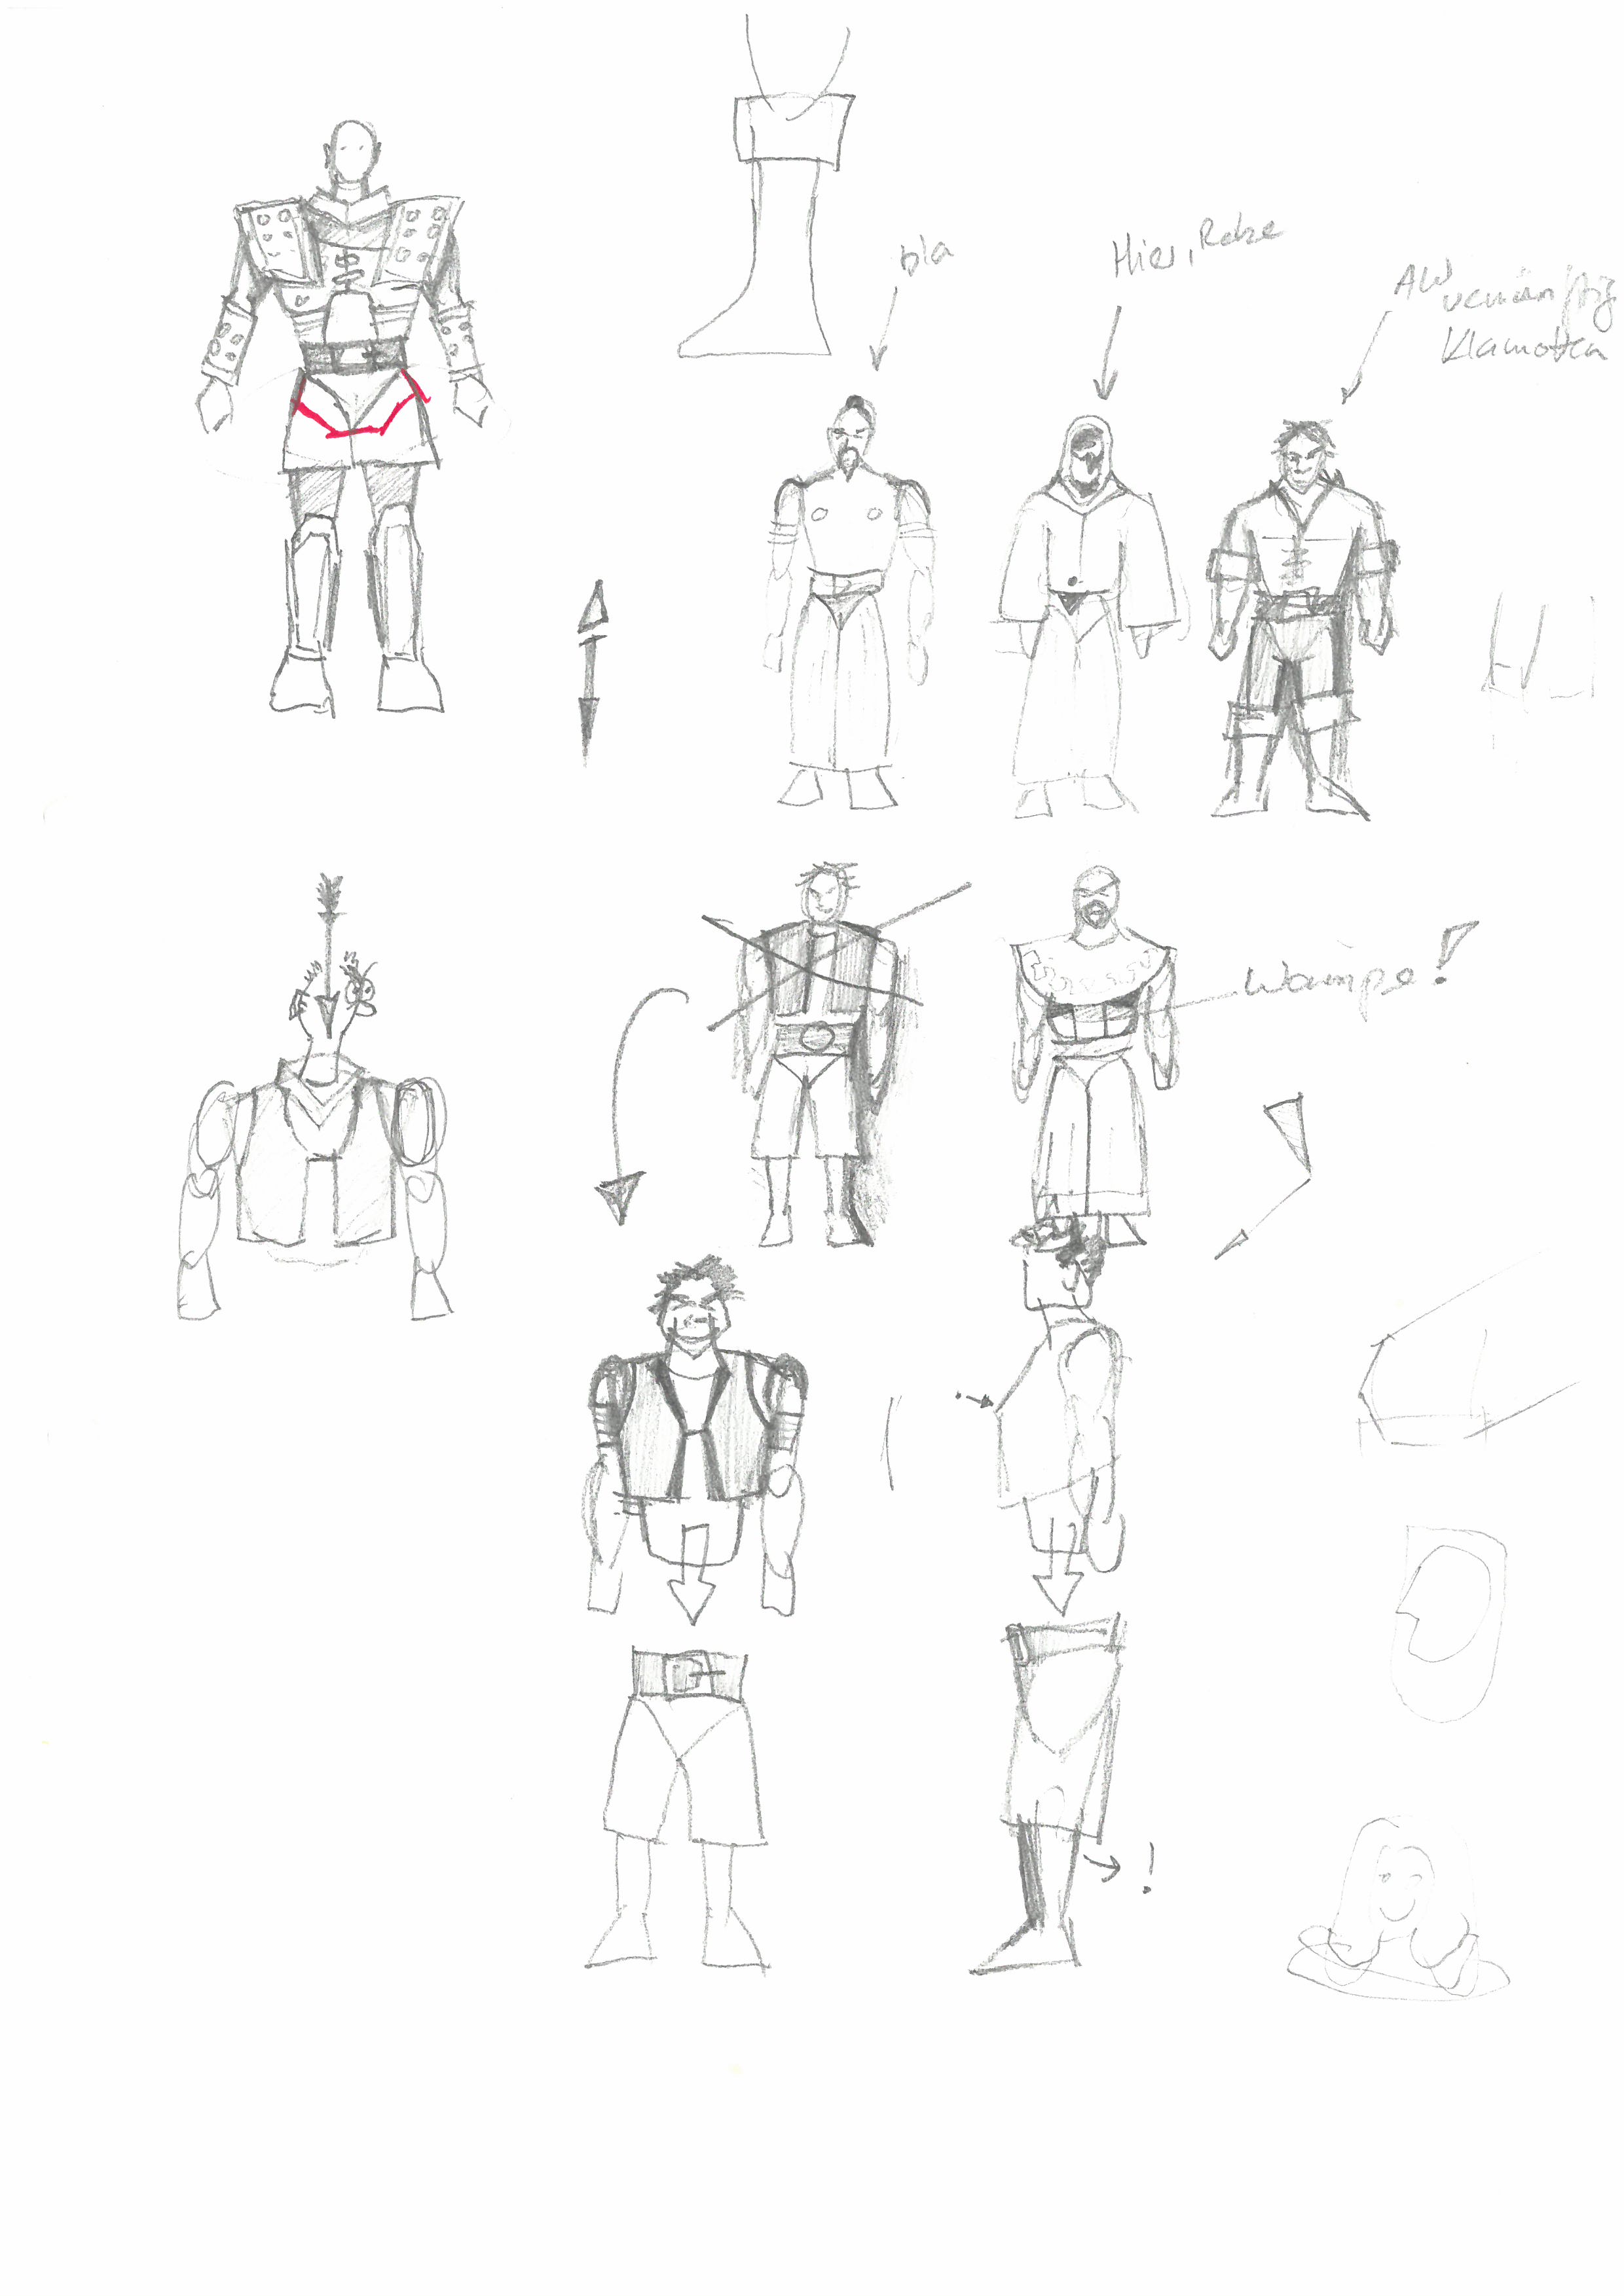 bla
Hier, Robe
vernünftig
Klamotten
Wampe!
!